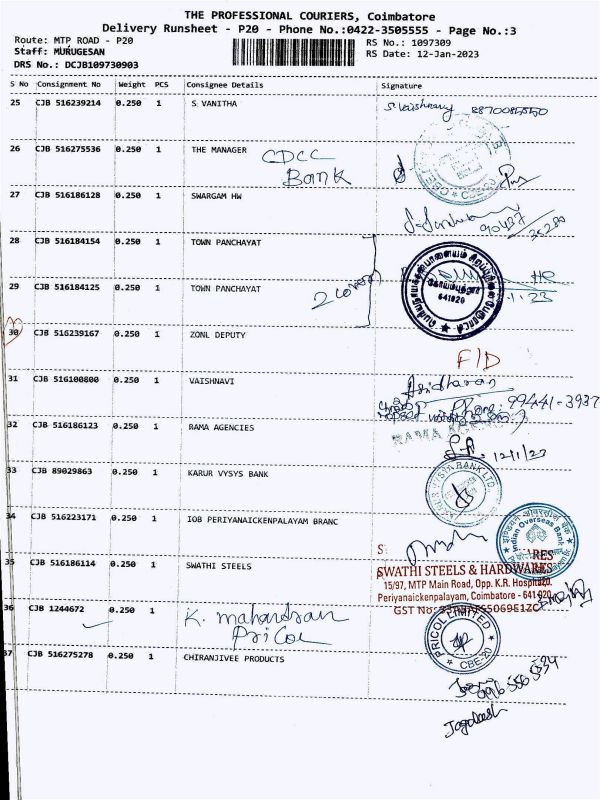 THE PROFESSIONAL COURIERS, Coimbatore
Delivery Runsheet - P20 - Phone No.:0422-3505555 - Page No.:3
Route: MTP ROAD - P20
RS No.: 1097309
Staff: MURUGESAN
RS Date: 12-Jan-2023
DRS No.: DCJB109730903
S No Consignment No Weight PCS Consignee Details Signature
25 CJB 516239214 0.250 1 S VANITHA S. Vaishnavy
26 CJB 516275536 0.250 1 THE MANAGER CDCC
Bank
CBE-20
27 CJB 516186128 0.250 1 SWARGAM HW
90437/35200
28 CJB 516184154 0.250 1 TOWN PANCHAYAT
கோயமுத்தூர்
641020
29 CJB 516184125 0.250 1 TOWN PANCHAYAT 2
30 CJB 516239167 0.250 1 ZONL DEPUTY
F/D
31 CJB 516100800 0.250 1 VAISHNAVI Asidharan
99441-3937
32 CJB 516186123 0.250 1 RAMA AGENCIES RAMA
12/1/23
33 CJB 89029863 0.250 1 KARUR VYSYS BANK
VYSYA BANK LTD
34 CJB 516223171 0.250 1 IOB PERIYANAICKENPALAYAM BRANC
Indian Overseas Bank
35 CJB 516186114 0.250 1 SWATHI STEELS
SWATHI STEELS & HARDWARES
15/97, MTP Main Road, Opp. K.R. Hospital,
Periyanaickenpalayam, Coimbatore - 641 020.
GST No
36 CJB 1244672 0.250 1 K. mahandran
Pricol
PRICOL LIMITED
CBE-20
37 CJB 516275278 0.250 1 CHIRANJIVEE PRODUCTS
Jagadeesh